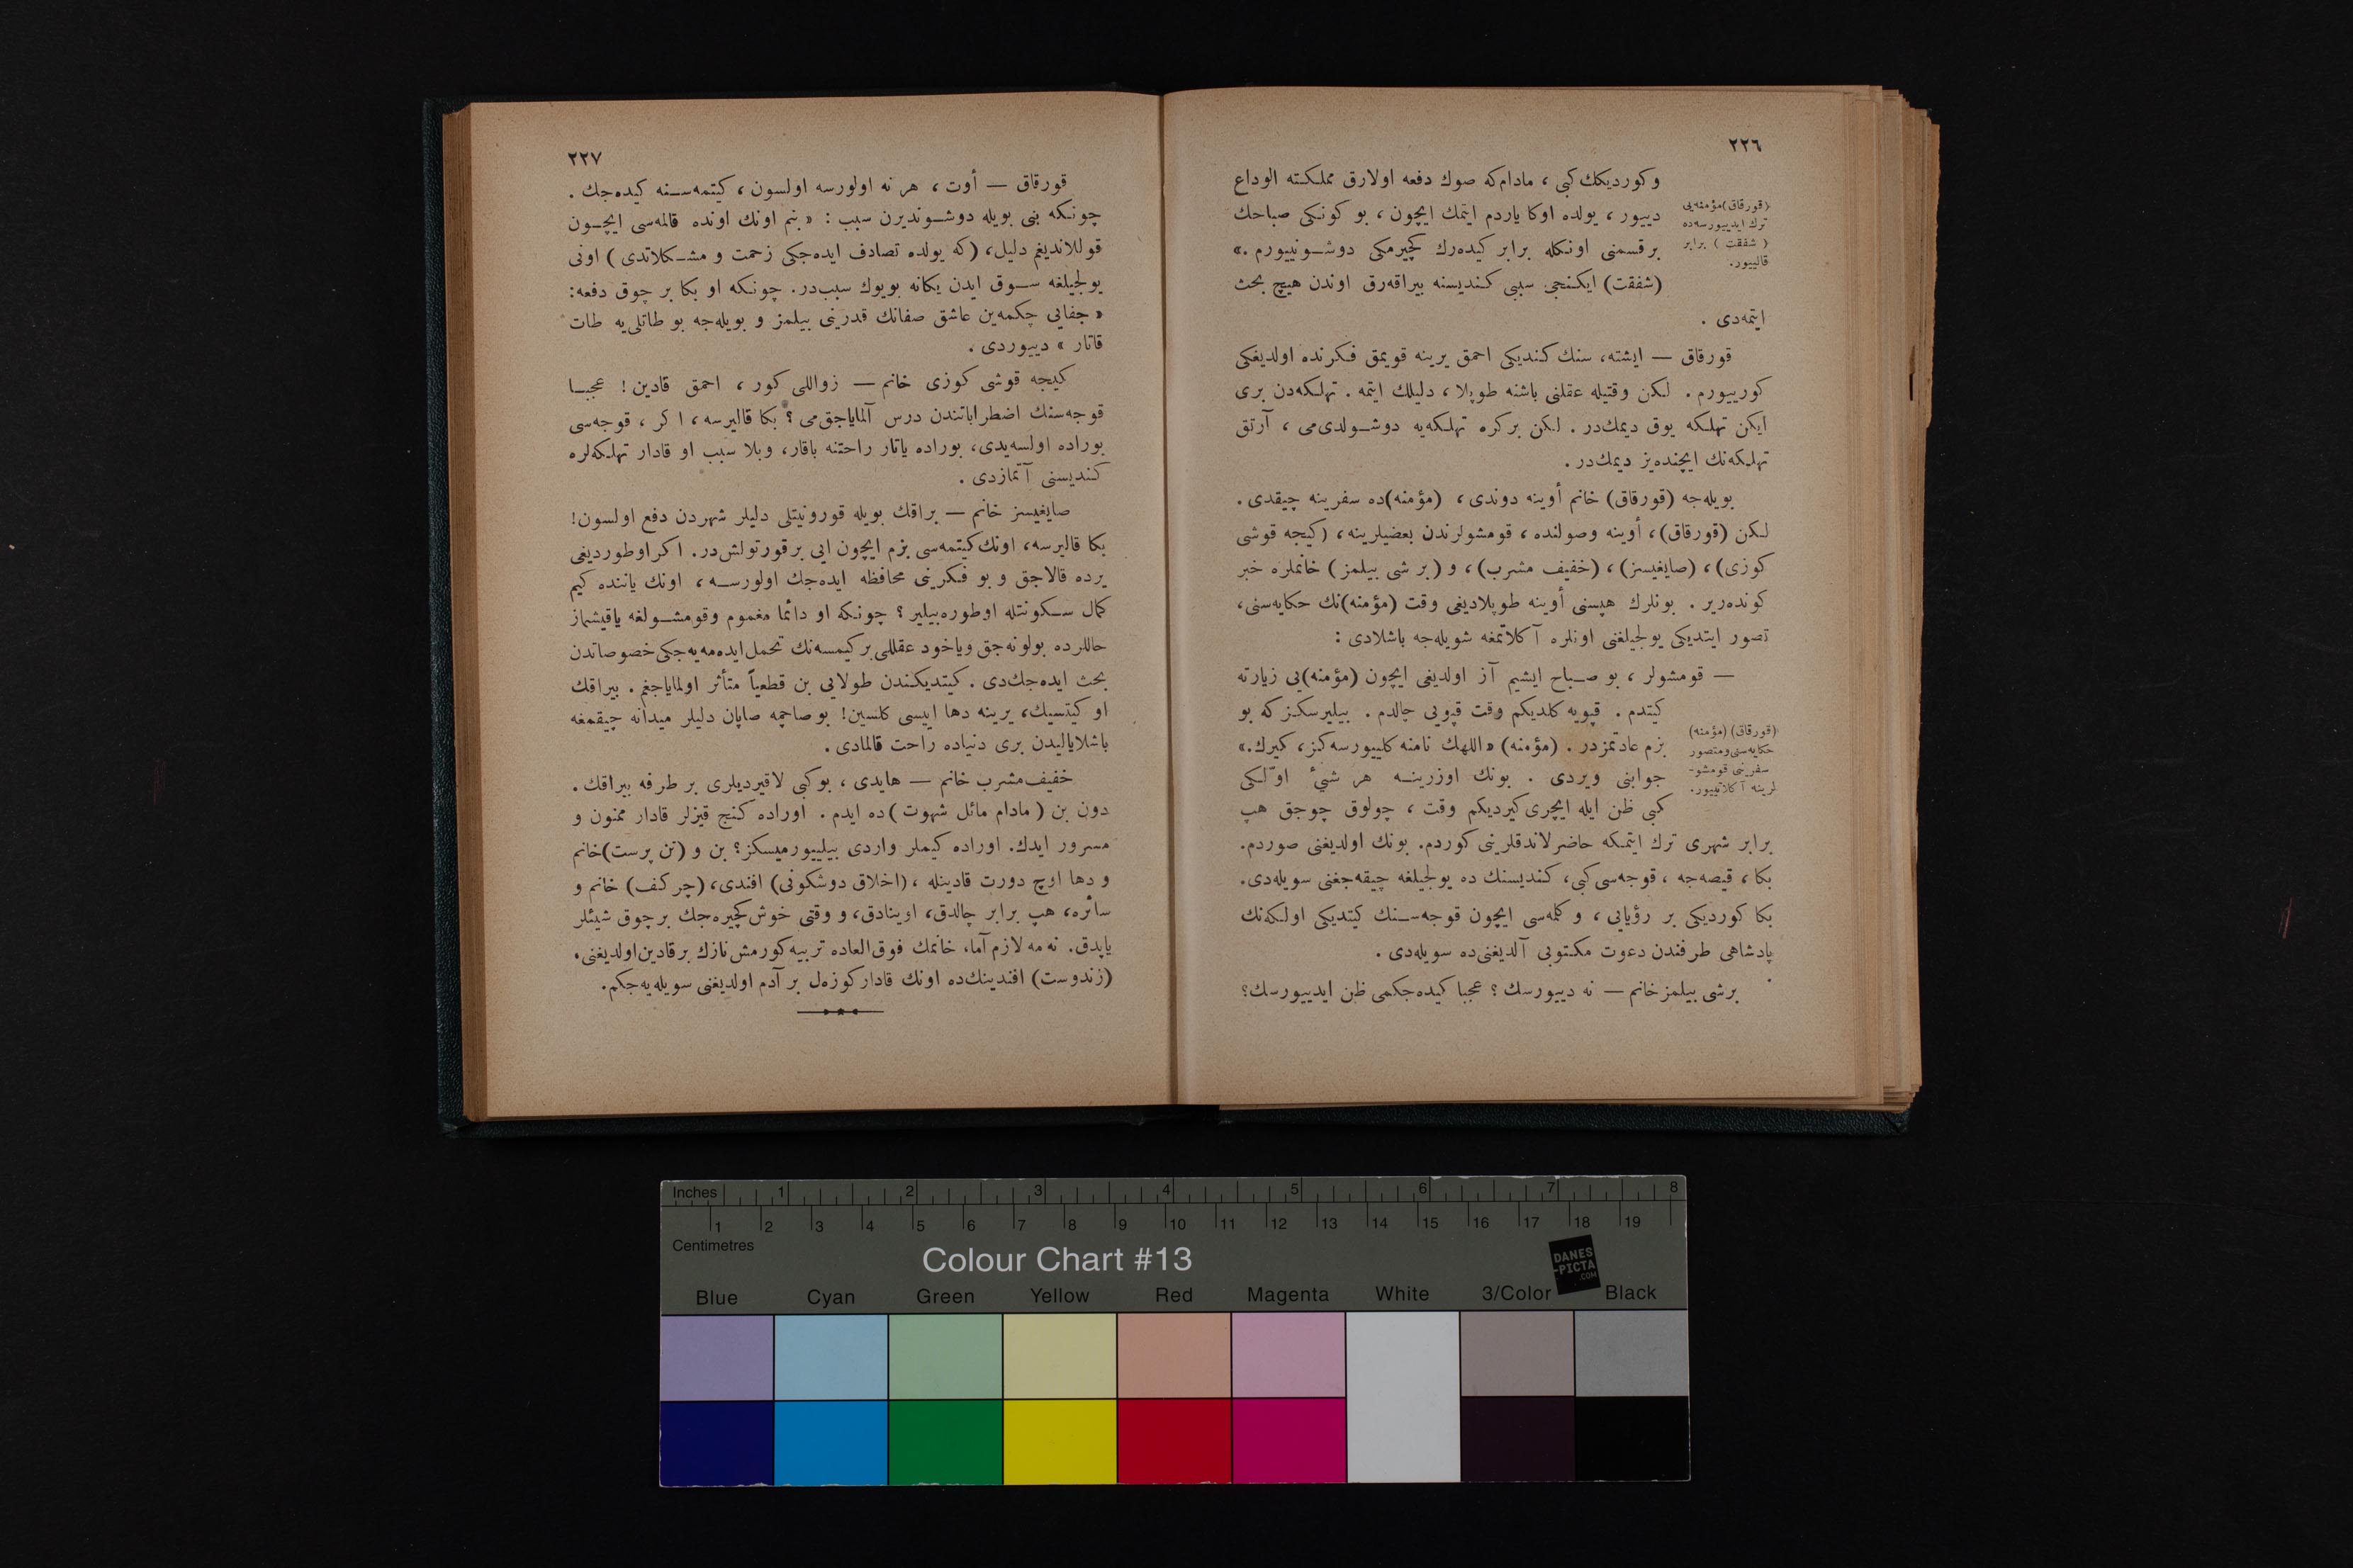 ٢٢٦
وكورديكك كبى ، مادام‌كه صوك دفعه اولارق مملكـته الوداع
دييور ، يولده اوكا ياردم ايتمك ايچون ، بو كونـكى صباحك
برقسمنى اونكله برابر كيده‌رك كچيرمكى دوشـونييورم .»
(شفقت) ايكنجى سببى كـنديسنه بيراقه‌رق اوندن هيچ بحث
ايتمه‌دى .
(قورقاق) مؤمنه‌يى
ترك ايدييورسه‌ده
( شفقت ) برابر
قالييور.
قورقاق — ايشته، سنك كـنديكى احمق يرينه قويمق فـكرنده اولديغكى
كورييورم . لـكن وقتيله عقلنى باشنه طوپلا ، دليلك ايتمه . تهلـكه‌دن برى
ايكن تهلـكه يوق ديمك‌در . لـكن بركره تهلـكه‌يه دوشـولدى‌مى ، آرتق
تهلـكه‌نك ايچنده‌يز ديمك‌در .
بويله‌جه (قورقاق) خانم أوينه دوندى ، (مؤمنه)ده سفرينه چيقدى .
لـكن (قورقاق) ، أوينه وصولنده ، قومشولرندن بعضيلرينه ، (كيجه قوشى
كوزى) ، (صايغيسز) ، (خفيف مشرب) ، و (بر شى بيلمز ) خانملره خبر
كونده‌رير . بونلرك هپسنى أوينه طوپلاديغى وقت (مؤمنه)نك حكايه‌سنى،
تصور ايتديكى يولجيلغنى اونلره آكلاتمغه شويله‌جه باشلادى :
— قومشولر ، بو صـباح ايشيم آز اولديغى ايچون (مؤمنه)يى زيارته
كيتدم . قپويه كلديكم وقت قپويى چالدم . بيليرسكـز كه بو
بزم عادتمزدر . (مؤمنه) «اللهك نامنه كلييورسه‌كـز، كيرك.»
جوابنى ويردى . بونك اوزرينـه هر شيئ اوّلـكى
كبى ظن ايله ايچرى كيرديكم وقت ، چولوق چوجق هپ
(قورقاق) (مؤمنه)
حكايه‌سنى ومتصور
سفرينى قومشو-
لرينه آكلاتييور.
برابر شهرى ترك ايتمكه حاضرلاندقلرينى كوردم. بونك اولديغنى صوردم.
بكا ، قيصه‌جه ، قوجه‌سى كبى، كـنديسنك ده يولجيلغه چيقه‌جغنى سويله‌دى.
بكا كورديكى بر رؤيايى ، و كلمه‌سى ايچون قوجه‌سـنك كيتديكى اولـكه‌نك
پادشاهى طرفندن دعوت مكـتوبى آلديغنى‌ده سويله‌دى .
برشى بيلمز خانم — نه دييورسك ؟ عجبا كيده‌جكمى ظن ايدييورسك؟
٢٢٧
قورقاق — أوت ، هر نه اولورسه اولسون ، كيتمه‌سـنه كيده‌جك .
چونكه بنى بويله دوشـونديرن سبب : « بنم اونك اونده قالمه‌سى ايچـون
قوللانديغم دليل، (كه يولده تصادف ايده‌جكى زحمت و مشـكلاتدى) اونى
يولجيلغه سـوق ايدن يكانه بويوك سبب‌در. چونكه او بكا بر چوق دفعه:
« جفايى چكمه‌ين عاشق صفانك قدرينى بيلمز و بويله‌جه بو طاتلى‌يه طات
قاتار » دييوردى .
كيجه قوشى كوزى خانم — زواللى كور ، احمق قادين ! عجبـا
قوجه‌سنك اضطراباتندن درس آلماياجق‌مى ؟ بكا قاليرسه ، اكر ، قوجه‌سى
بوراده اولسه‌يدى، بوراده ياتار راحتنه باقار، وبلا سبب او قادار تهلـكه‌لره
كـنديسنى آتمازدى .
صايغيسز خانم — براقك بويله قورونيتلى دليلر شهردن دفع اولسون!
بكا قاليرسه، اونك كيتمه‌سى بزم ايچون ايى برقورتولش‌در. اكر اوطورديغى
يرده قالاجق و بو فـكرينى محافظه ايده‌جك اولورسـه ، اونك ياننده كيم
كمال سـكونتله اوطوره‌بيلير ؟ چونكه او دائما مغموم وقومشـولغه ياقيشماز
حاللرده بولونه‌جق وياخود عقللى بركيمسه‌نك تحمل ايده‌مه‌يه‌جكى خصوصاتدن
بحث ايده‌جك‌دى . كيتديكـندن طولايى بن قطعياً متأثر اولماياجغم . بيراقك
او كيتسيك، يرينه دها اييسى كلسين! بو صاچمه صاپان دليلر ميدانه چيقمغه
باشلاياليدن برى دنياده راحت قالمادى .
خفيف‌مشرب خانم — هايدى ، بوكبى لاقيرديلرى بر طرفه بيراقك .
دون بن ( مادام مائل شهوت )ده ايدم . اوراده كنج قيزلر قادار ممنون و
مسرور ايدك. اوراده كيملر واردى بيلييورميسكز؟ بن و (تن پرست)خانم
و دها اوچ دورت قادينله ، (اخلاق دوشكونى) افندى، (چركف) خانم و
سائره، هپ برابر چالدق، اوينادق، و وقتى خوش كچيره‌جك برچوق شيئلر
ياپدق. نه‌مه لازم آما، خانمك فوق‌العاده تربيه كورمش نازك برقادين اولديغنى،
(زندوست) افندينك‌ده اونك قادار كوزه‌ل بر آدم اولديغنى سويله‌يه‌جكم.
Inches 1 2 3 4 5 6 7 8
1 2 3 4 5 6 7 8 9 10 11 12 13 14 15 16 17 18 19
Centimetres
Colour Chart #13
DANES
-PICTA
.COM
Blue Cyan Green Yellow Red Magenta White 3/Color Black